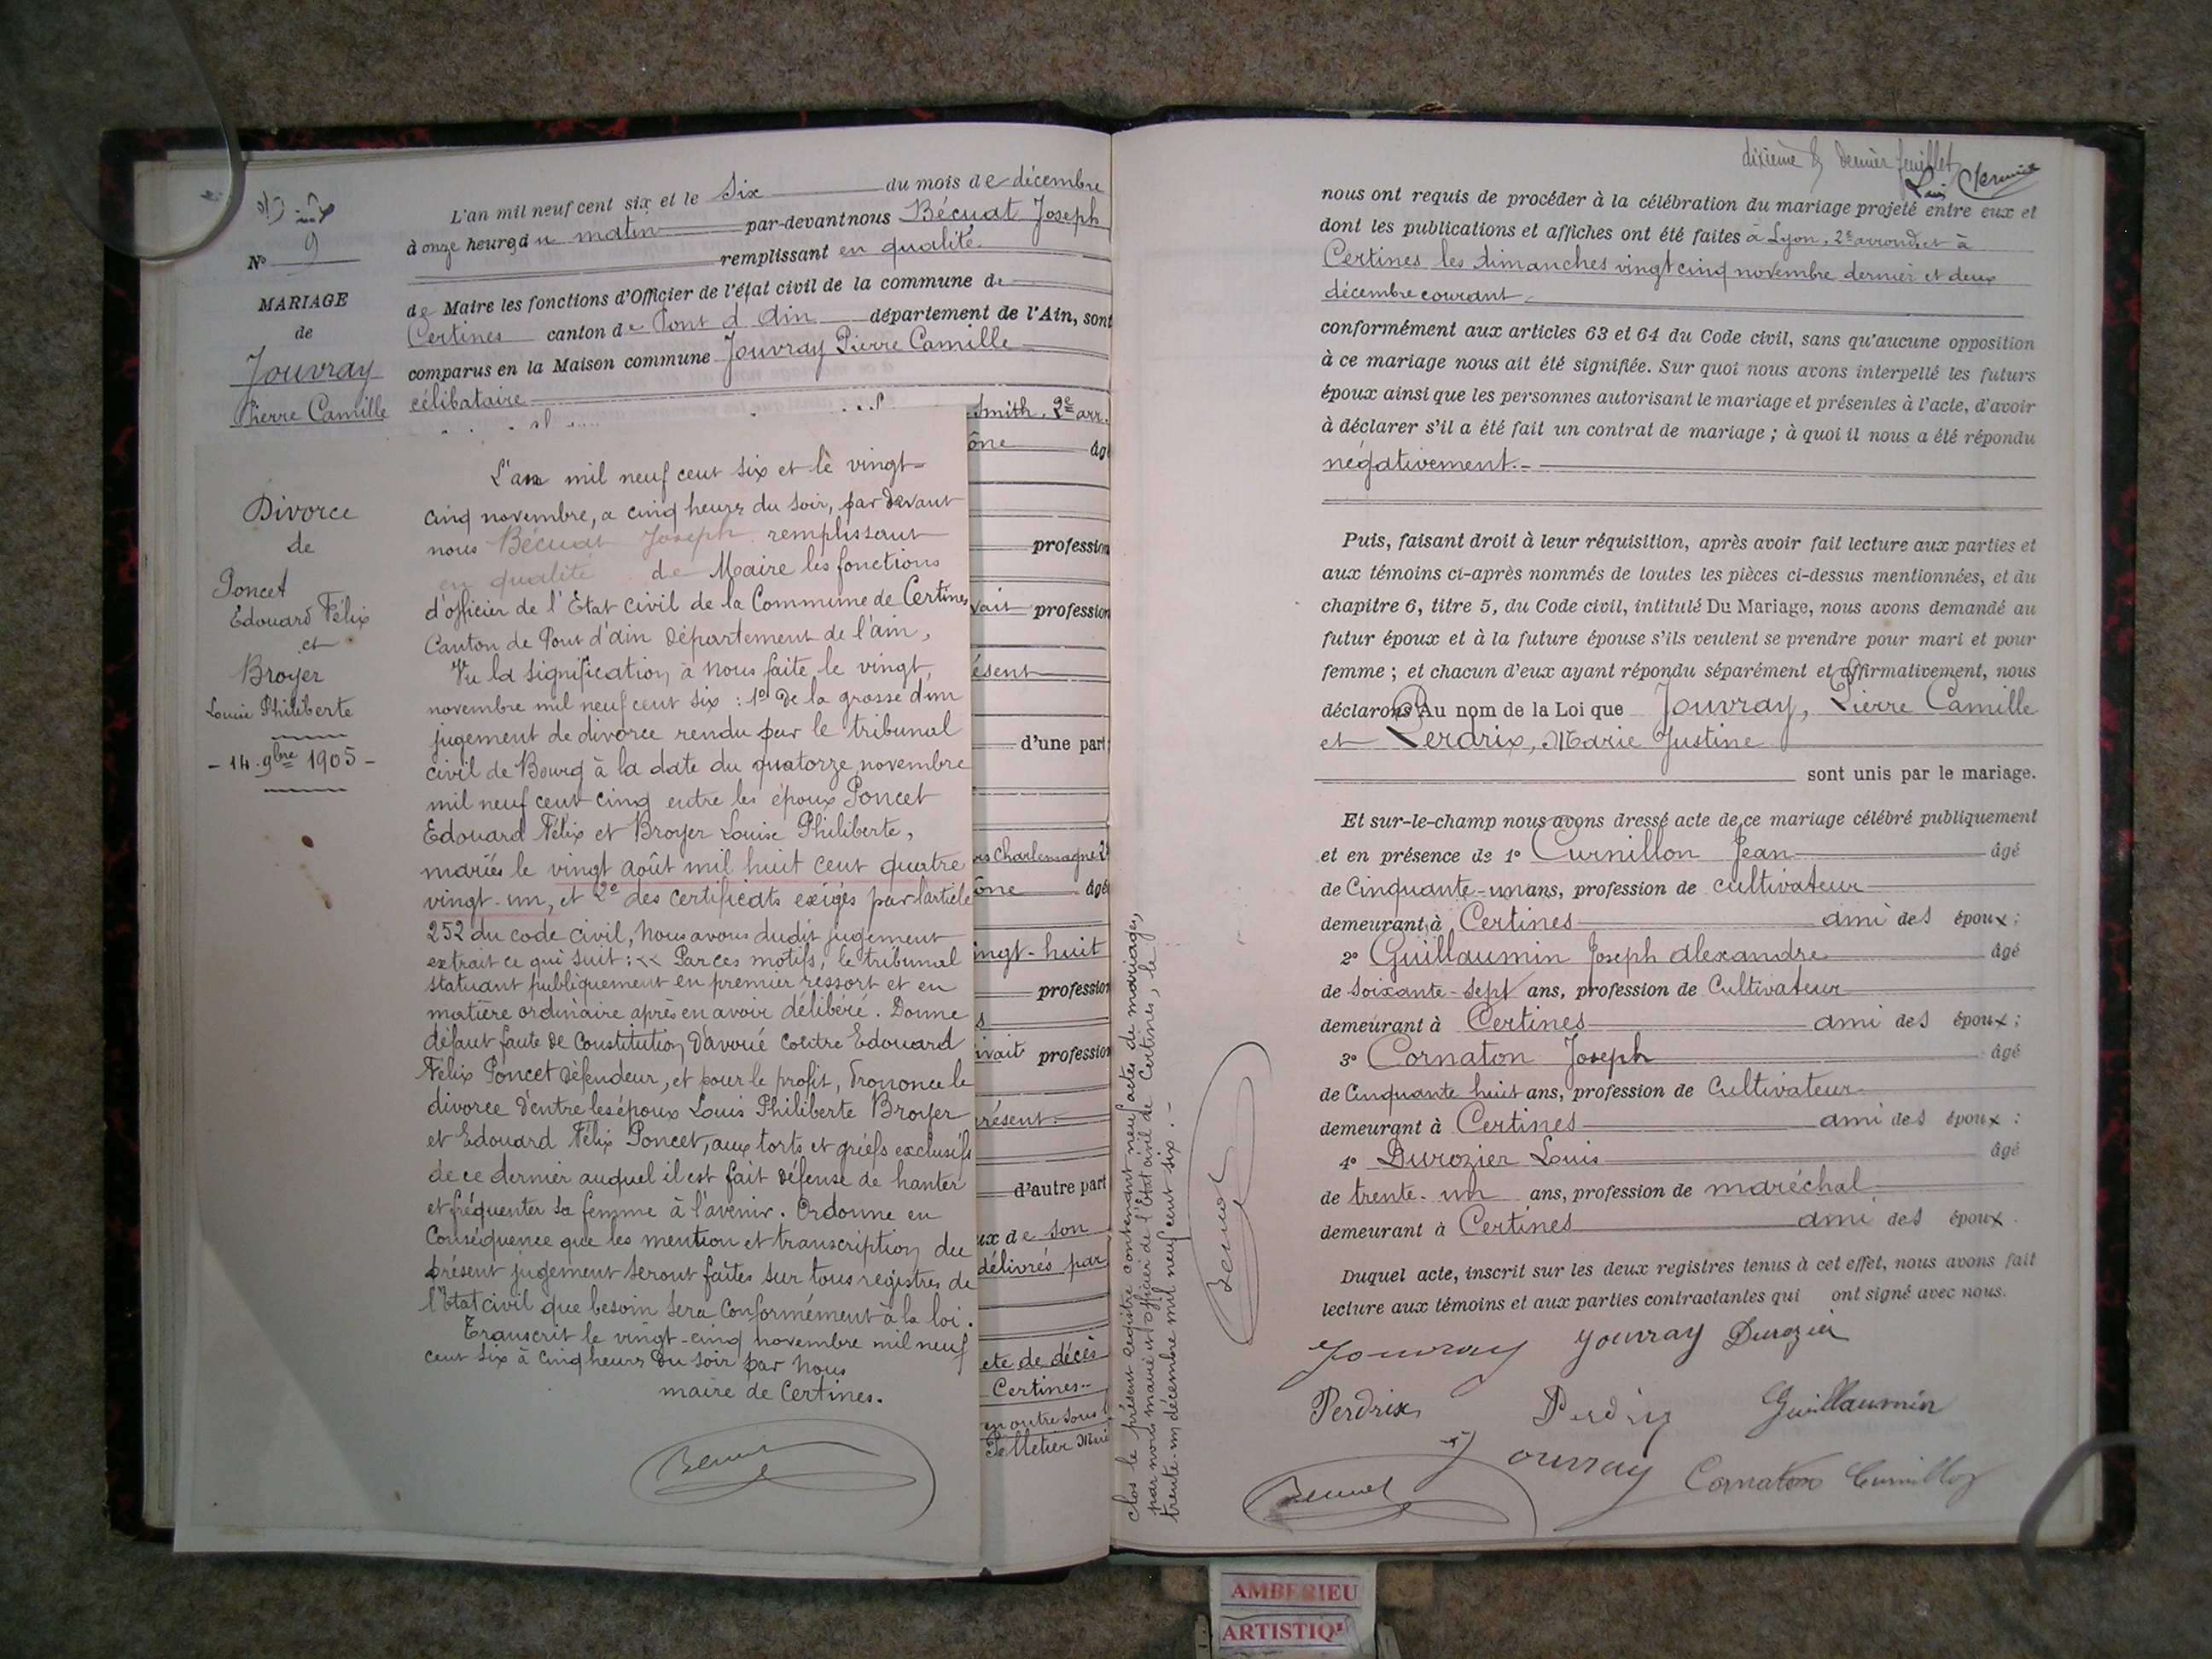 N° 9
MARIAGE
de
Jouvray
Pierre Camille
L'an mil neuf cent six et le Six du mois de décembre
à onze heures du matin par-devant nous Bécuat Joseph
remplissant en qualité
de Maire les fonctions d'Officier de l'état civil de la commune de
Certines canton de Pont d'Ain département de l'Ain, sont
comparus en la Maison commune Jouvray Pierre Camille
célibataire
Smith, 2e arr.
ône âgé
profession
vait profession
ésent
d'une part
Charlemagne 2e
ône âgé
ingt-huit
profession
s
ivait profession
résent.
d'autre part
ux de son
délivrés par
cte de décès
Certines..
en outre sous
Pelletier
Divorce
de
Poncet
Edouard Félix
et
Broyer
Louise Philiberte
- 14 - 9bre 1905 -
L'an mil neuf cent six et le vingt-
cinq novembre, a cinq heures du soir, par devant
nous Bécuat Joseph remplissant
en qualité de Maire les fonctions
d'officier de l'Etat Civil de la Commune de Certines
Canton de Pont d'ain Département de l'ain,
Vu la signification à nous faite le vingt,
novembre mil neuf cent six : 1° De la grosse d'un
jugement de divorce rendu par le tribunal
civil de Bourg à la date du quatorze novembre
mil neuf cent cinq entre les époux Poncet
Edouard Félix et Broyer Louise Philiberte,
mariés le vingt août mil huit cent quatre
vingt-un, et 2° des certificats exigés par l'article
252 du code civil, Nous avons dudit jugement
extrait ce qui suit : << Par ces motifs, le tribunal
statuant publiquement en premier ressort et en
matière ordinaire après en avoir délibéré. Donne
défaut faute de Constitution d'avoué contre Edouard
Félix Poncet défendeur, et pour le profit, Prononce le
divorce d'entre les époux Louis Philiberte Broyer
et Edouard Félix Poncet, aux torts et griefs exclusifs
de ce dernier auquel il est fait défense de hanter
et fréquenter sa femme à l'avenir. Ordonne en
Conséquence que les mention et transcription du
présent jugement seront faites sur tous registres de
l'état civil que besoin sera conformément à la loi.
Transcrit le vingt-cinq novembre mil neuf
cent six à cinq heures du soir par nous
maire de Certines.
clos le présent registre contenant neuf actes de mariages,
par nous maire et officier de l'état civil de Certines, le
trente-un décembre mil neuf cent six. -
dixième & dernier feuillet
nous ont requis de procéder à la célébration du mariage projeté entre eux et
dont les publications et affiches ont été faites à Lyon, 2e arrond. et à
Certines les dimanches vingt cinq novembre dernier et deux
décembre courant.
conformément aux articles 63 et 64 du Code civil, sans qu'aucune opposition
à ce mariage nous ait été signifiée. Sur quoi nous avons interpellé les futurs
époux ainsi que les personnes autorisant le mariage et présentes à l'acte, d'avoir
à déclarer s'il a été fait un contrat de mariage ; à quoi il nous a été répondu
négativement.-
Puis, faisant droit à leur réquisition, après avoir fait lecture aux parties et
aux témoins ci-après nommés de toutes les pièces ci-dessus mentionnées, et du
chapitre 6, titre 5, du Code civil, intitulé Du Mariage, nous avons demandé au
futur époux et à la future épouse s'ils veulent se prendre pour mari et pour
femme ; et chacun d'eux ayant répondu séparément et affirmativement, nous
déclarons Au nom de la Loi que Jouvray, Pierre Camille
et Perdrix, Marie Justine
sont unis par le mariage.
Et sur-le-champ nous avons dressé acte de ce mariage célébré publiquement
et en présence de 1° Curnillon Jean âgé
de Cinquante-un ans, profession de cultivateur
demeurant à Certines ami des époux ;
2° Guillaumin Joseph Alexandre âgé
de soixante-sept ans, profession de Cultivateur
demeurant à Certines ami des époux ;
3° Cornaton Joseph âgé
de Cinquante huit ans, profession de Cultivateur
demeurant à Certines ami des époux :
4° Durozier Louis âgé
de trente-un ans, profession de maréchal
demeurant à Certines ami des époux.
Duquel acte, inscrit sur les deux registres tenus à cet effet, nous avons fait
lecture aux témoins et aux parties contractantes qui ont signé avec nous.
Jouvray Jouvray Durozier
Perdrix Perdrix Guillaumin
Jouvray Cornaton Curnillon
AMBERIEU
ARTISTIQ